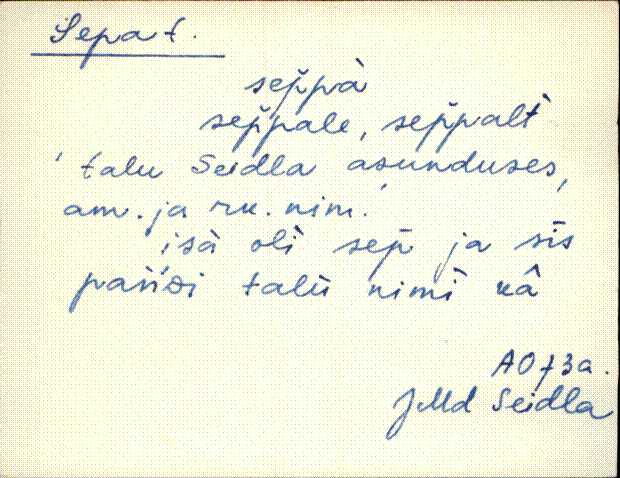 Sepa t.
sep̆pà
sep̆pale, sep̆paltˋ
' talu Seidla asunduses,
am. ja rk. nim.'
isà olì sep̄ ja sīs
pańďi talù nimì kâ
AO73a.
JMd Seidla